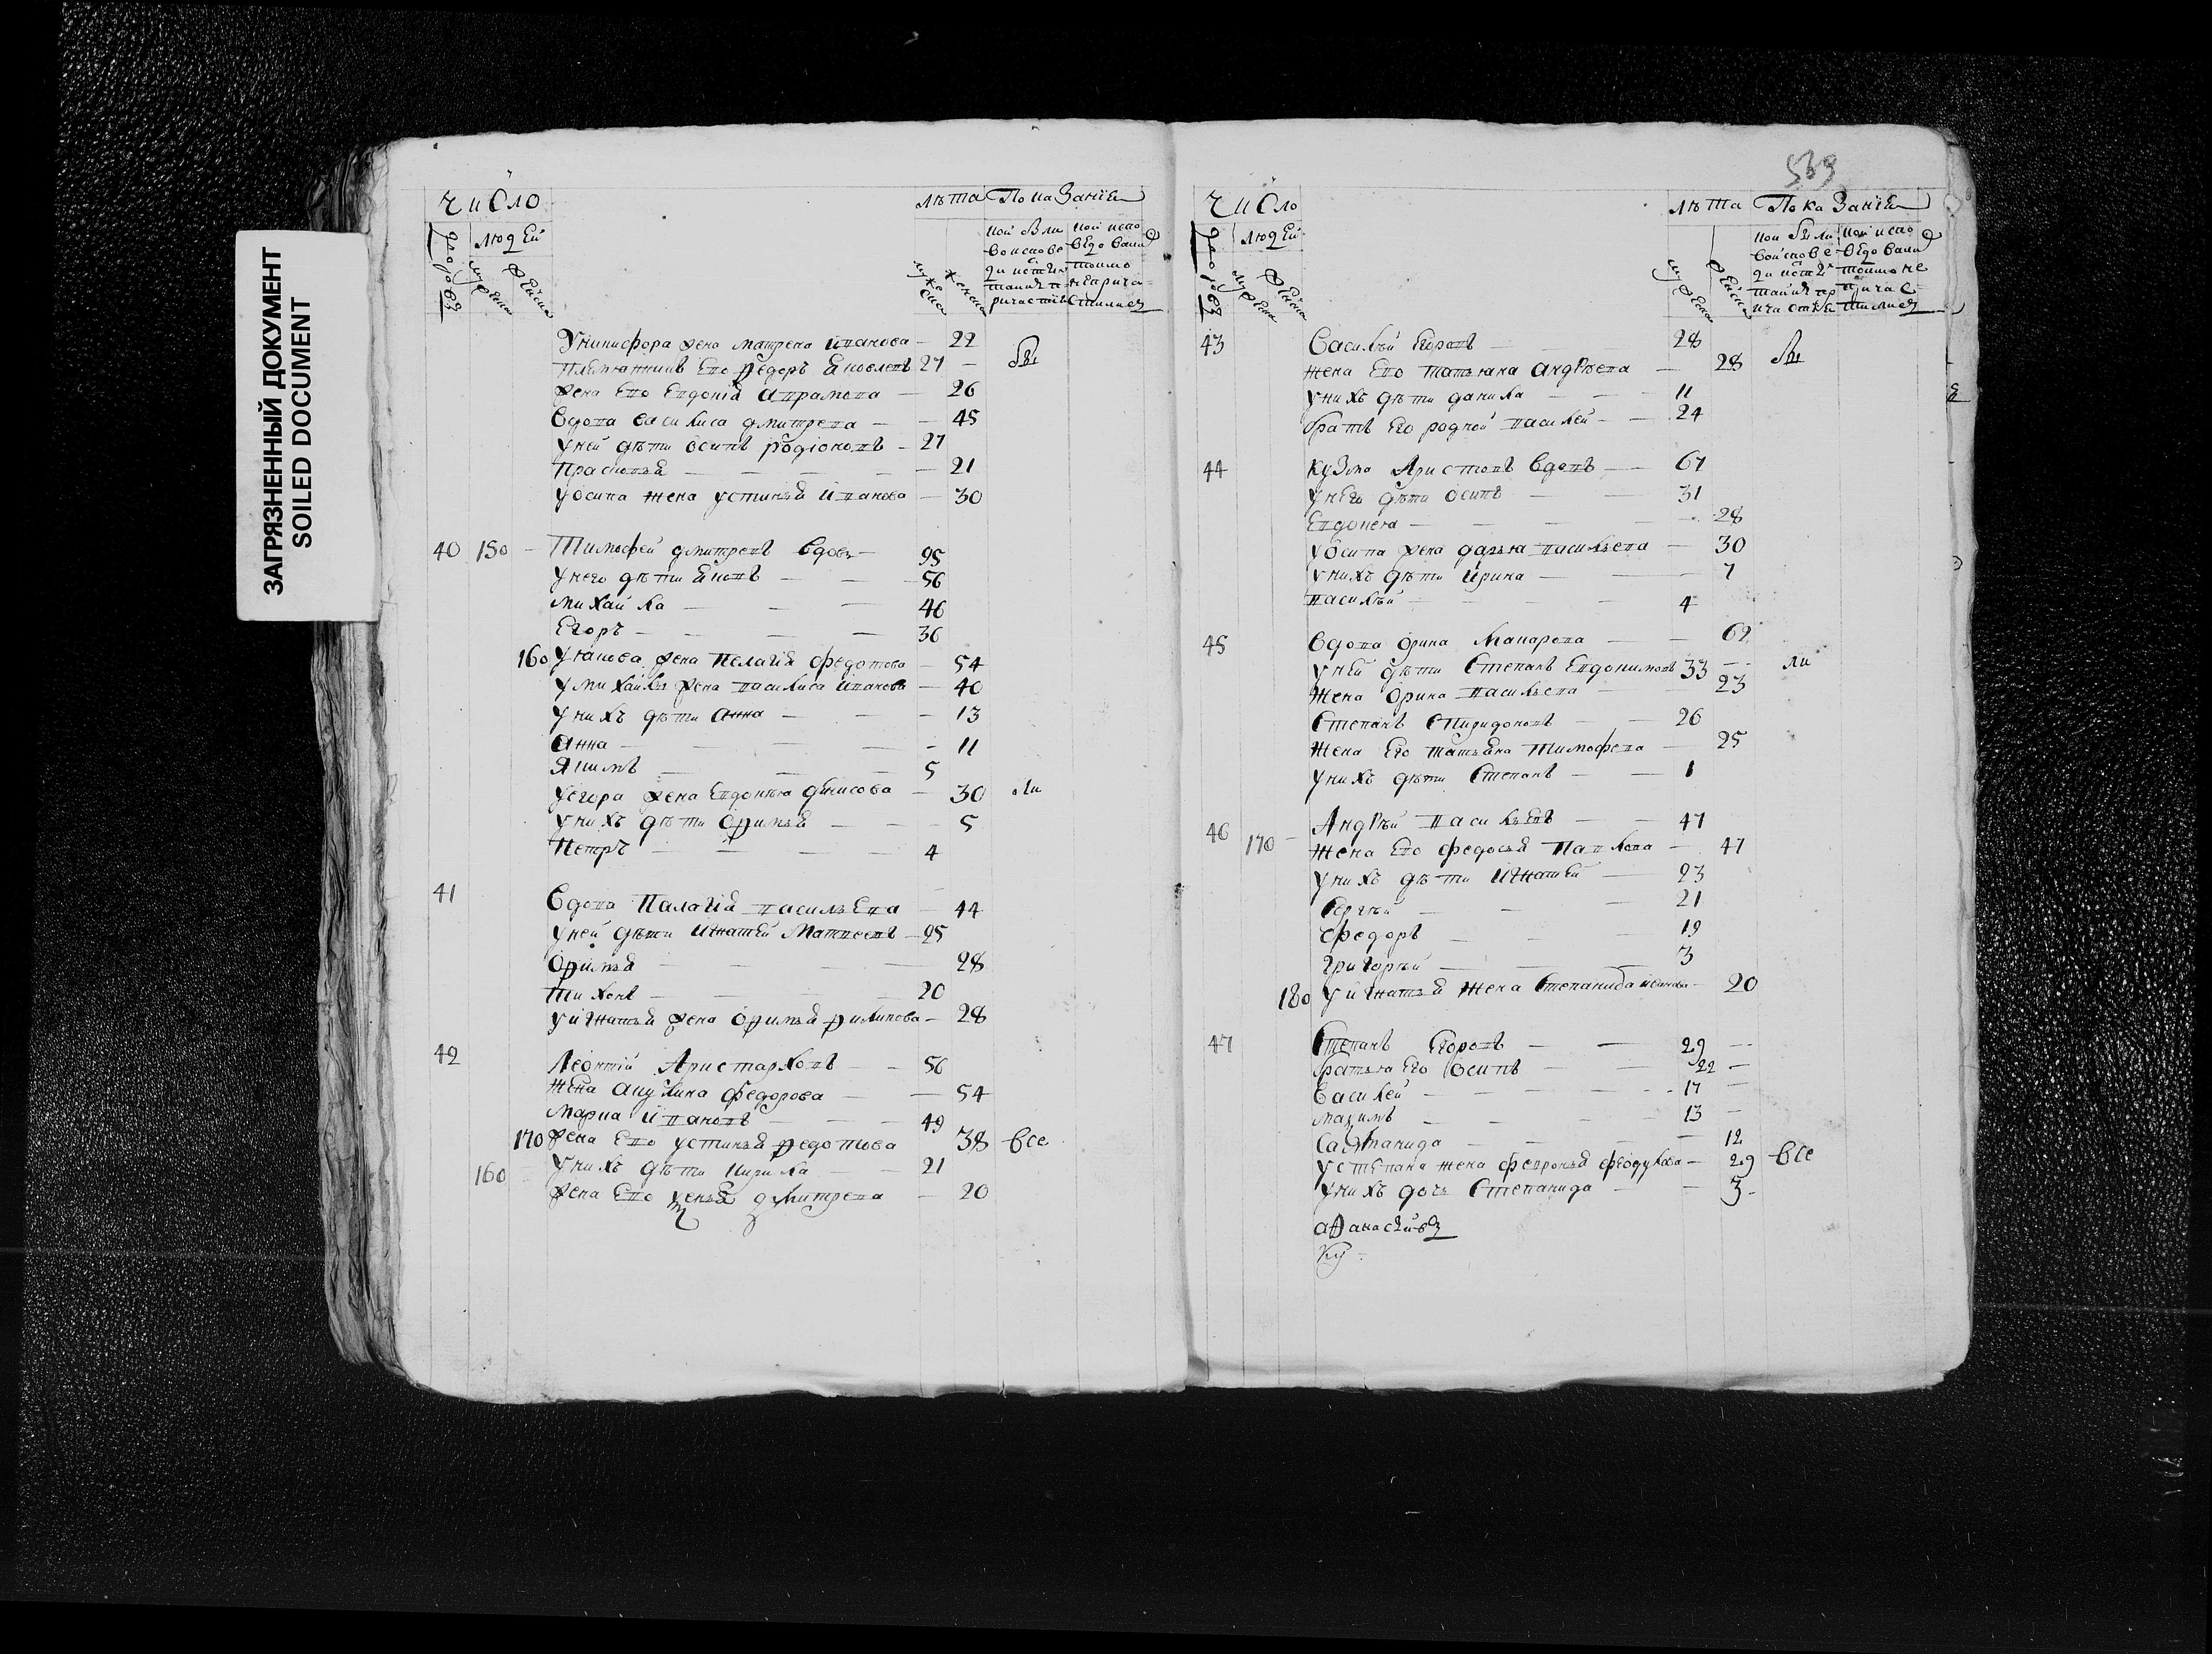 ЗАГРЯЗНЕННЫЙ ДОКУМЕНТ
SOILED DOCUMENT
число
лѣта Показанїе
людей
Унинисфора жена матрена иванова 22
Племянникъ его федоръ яковлевъ 27
бы
жена его евдокіа аврамова 26
вдова василиса дмитрева 45
у ней дѣти осипъ родіоновъ 27
Прасковья 21
у осипа жена устинья иванова 30
40 150 Тимофей дмитревъ вдовъ 95
у него дѣти яковъ 56
михайла 46
Егоръ 36
160 у якова жена Пелагія федотова 54
у михайлы жена василиса иванова 40
у нихъ дѣти анна 13
анна 11
якимъ 5
у егора жена евдокѣя денисова 30 ли
у нихъ дѣти ѳфимья 5
Петръ 4
41 вдова Палагія васильева 44
у ней дѣти игнатей матвеевъ 25
Офимья 28
тихонъ 20
у игнатья жена офимья филипова 28
42 Леонтій Аристарховъ 56
жена акулина федорова 54
марка ивановъ 49
170 жена его устинья федотова 38 все
160 у нихъ дѣти кирила 21
жена его дмитрева 20
569
число
лѣта Показанїе
людей
43 василѣй Егоровъ 28
жена его татьяна андрѣева 28 бы
у нихъ дѣти данила 11
братъ его родной василей 24
44 кузма Аристовъ вдовъ 67
у него дѣти осипъ 31
Евдокея 28
у осипа жена дарья васильева 30
у нихъ дѣти ирина 7
василѣй 4
45 вдова орина макарова 62
у ней дѣти степанъ евдокимовъ 33 ли
жена орина васильева 23
степанъ спиридоновъ 26
жена его татьяна тимофева 25
у нихъ дѣти степанъ 1
46 Андрѣй васильевъ 47
170 жена его федосья павлова 47
у нихъ дѣти игнатей 23
Сергѣй 21
федоръ 19
григорѣй 3
180 у игнатья жена степанида иванова 20
47 степанъ Егоровъ 29
братья его осипъ 22
василей 17
максимъ 13
12
у степана жена февронья феодулова 29 все
у нихъ дочь степанида 3
аѳанасѣивъ
Ку